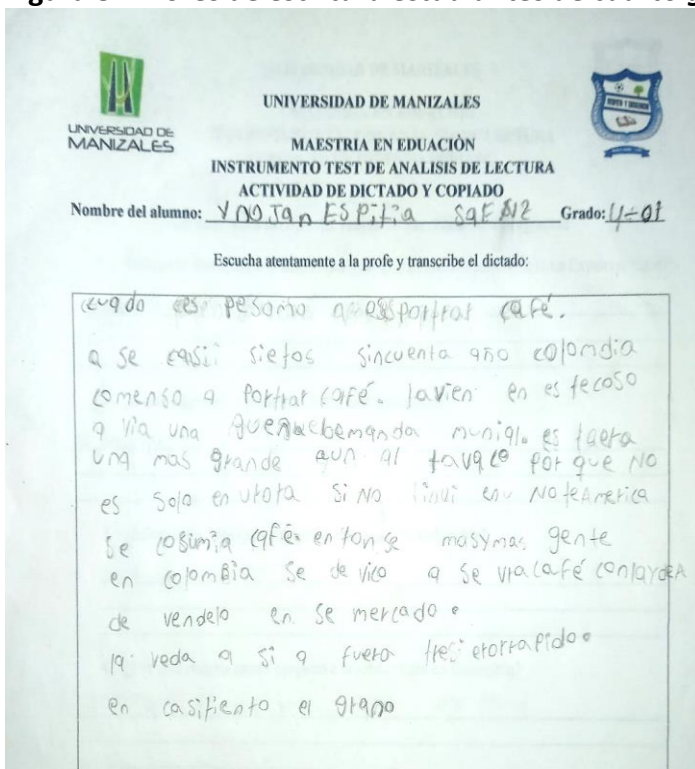 UNIVERSIDAD DE MANIZALES
UNIVERSIDAD DE
MANIZALES
MAESTRIA EN EDUACIÒN
INSTRUMENTO TEST DE ANALISIS DE LECTURA
ACTIVIDAD DE DICTADO Y COPIADO
Nombre del alumno: ESPitia Grado: 4-01
Escucha atentamente a la profe y transcribe el dictado:
pesomo café.
a se sietos sincuenta año colomdia
comenso a Portrar café. tavien en es fecoso
a via una munigl. es taera
una mas grande aun al tavaco por que NO
es solo en urota si NO NoteAmerica
se cosimia café en ton se masymas gente
en colomBia se de vico a se via café conlaydeA
de vendelo en se mercado.
la veda a si a fuera
en casitiento el grano